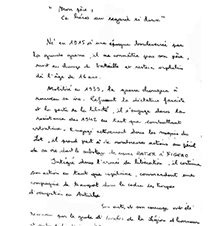 " Mon père,
Ce héros au regard si doux "
Né en 1915 à une époque bouleversée par
la grande guerre, il ne connaîtra pas son père,
mort au champ de bataille et restera orphelin
de l'âge de 16 ans.
Mobilisé en 1939, la guerre changera à
nouveau sa vie. Refusant la dictature fasciste
et la perte de la liberté, il s'engage dans la
résistance dès 1942 en tant que combattant
volontaire, engagé activement dans les maquis du
Lot, il prend part à de nombreuses actions au péril
de sa vie dont le sabotage de l'usine RATIER à FIGEAC
Intégré dans l'armée de libération, il continue
son action en tant que capitaine, commandant une
compagnie de transport dans le cadre des troupes
d'occupation en Autriche.
Ses actes et son courage ont été
reconnus par le grade d' de la légion d'honneur